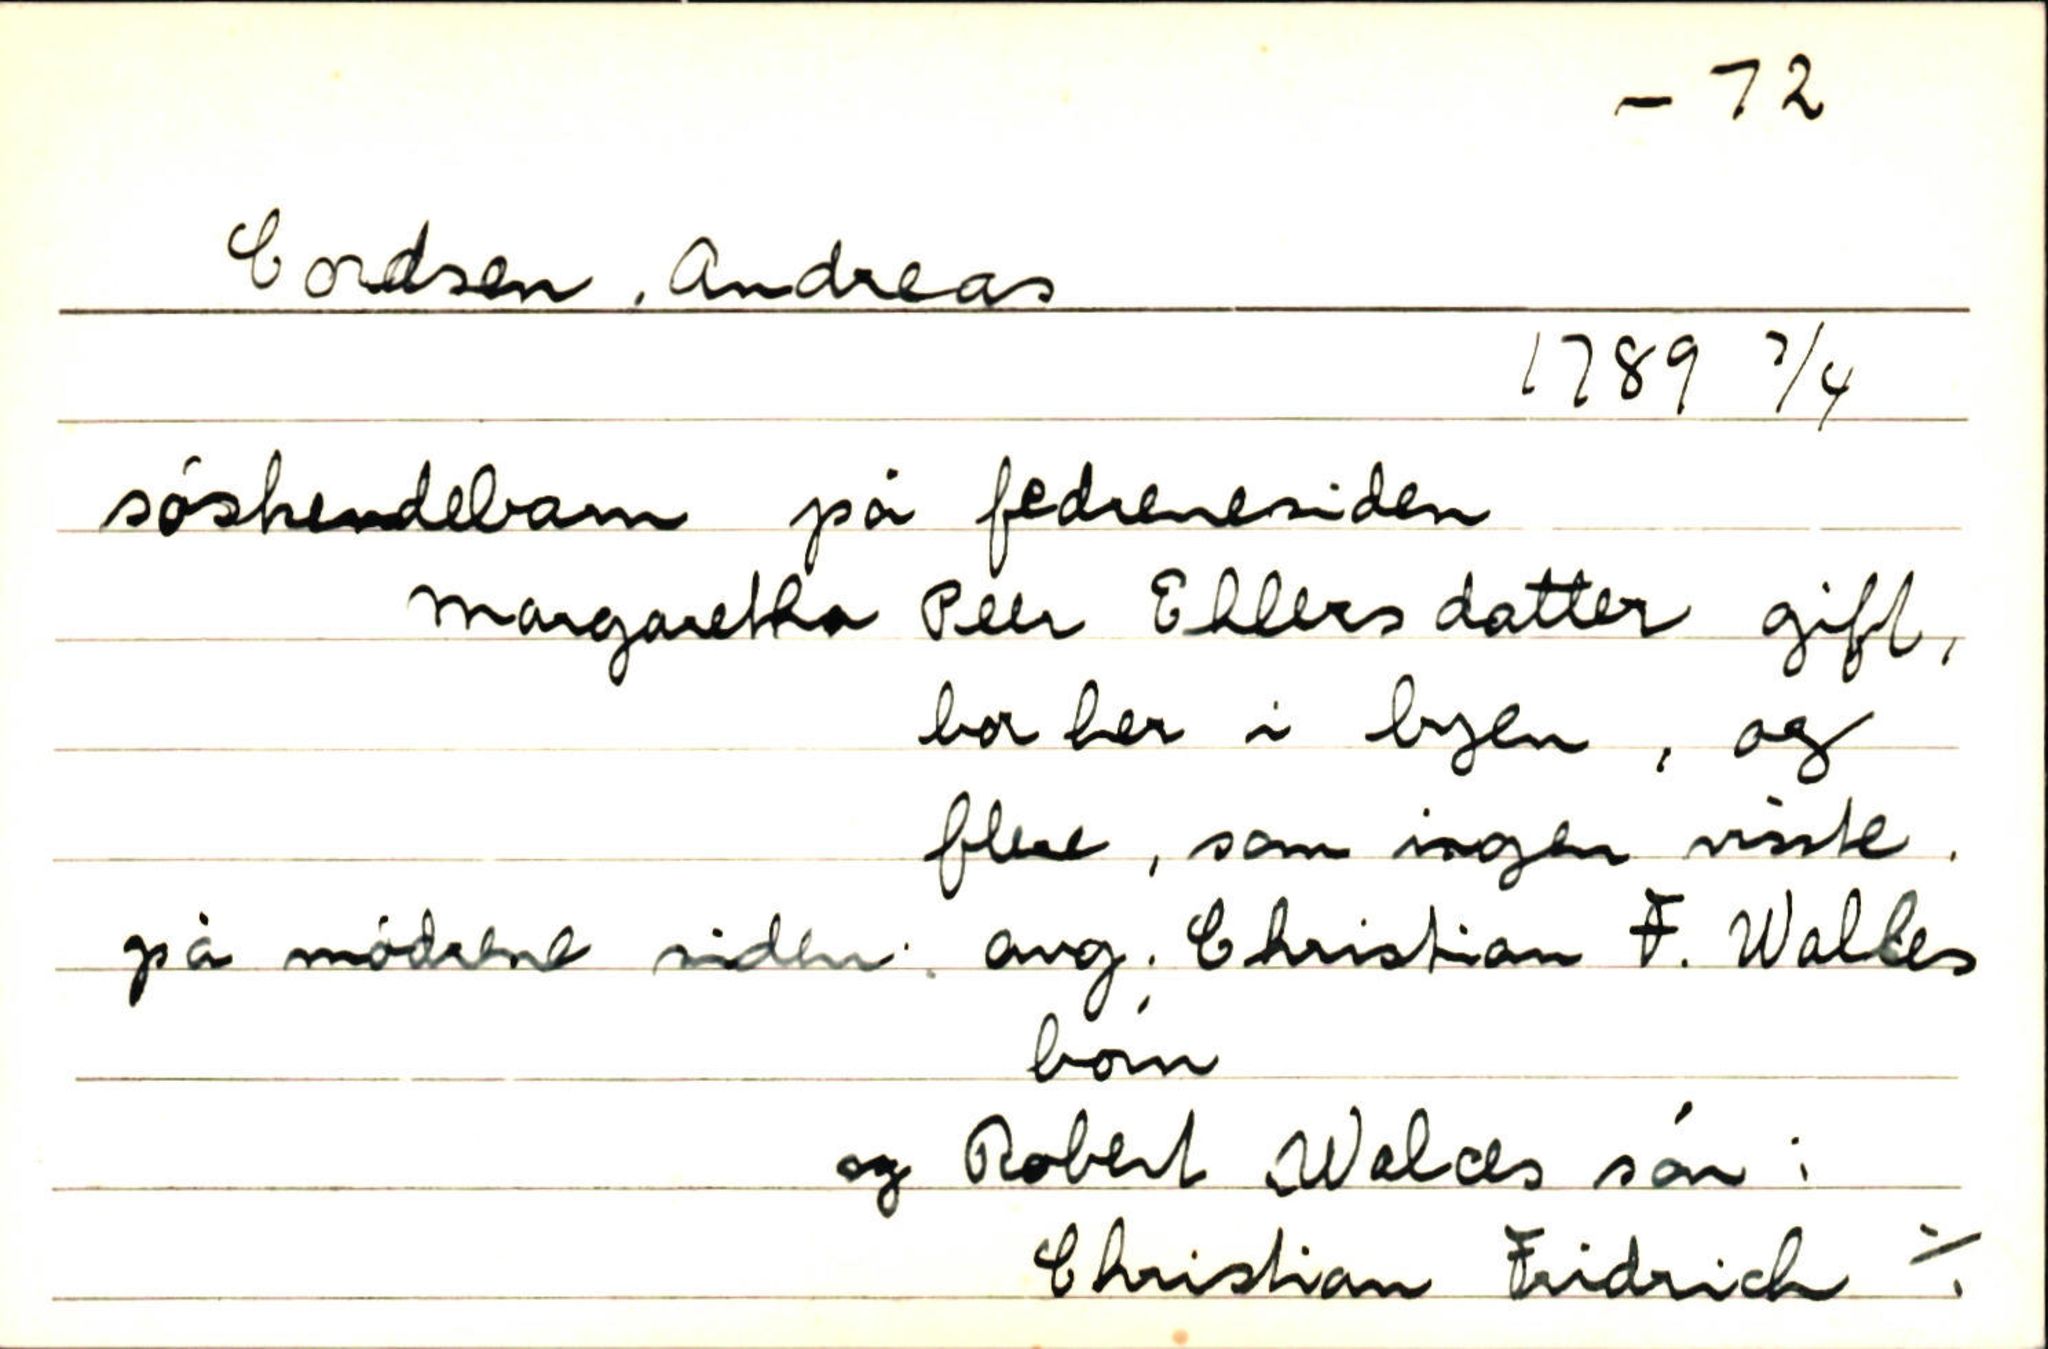 – 72
Cordsen, Andreas
1789 7/4
söskendebarn på fedrenesiden
Margaretha Peer Ehlers datter gift,
bor her i byen, og
flere, som ingen visste.
på mödrene siden: avg. Christian F. Walkes
börn
og Robert Walces sön:
Christian Fridrich ./.